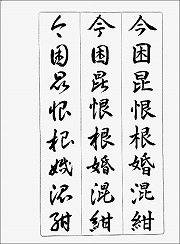 今困昆恨根婚混紺
今困昆恨根婚混紺
今困昆恨根婚混紺